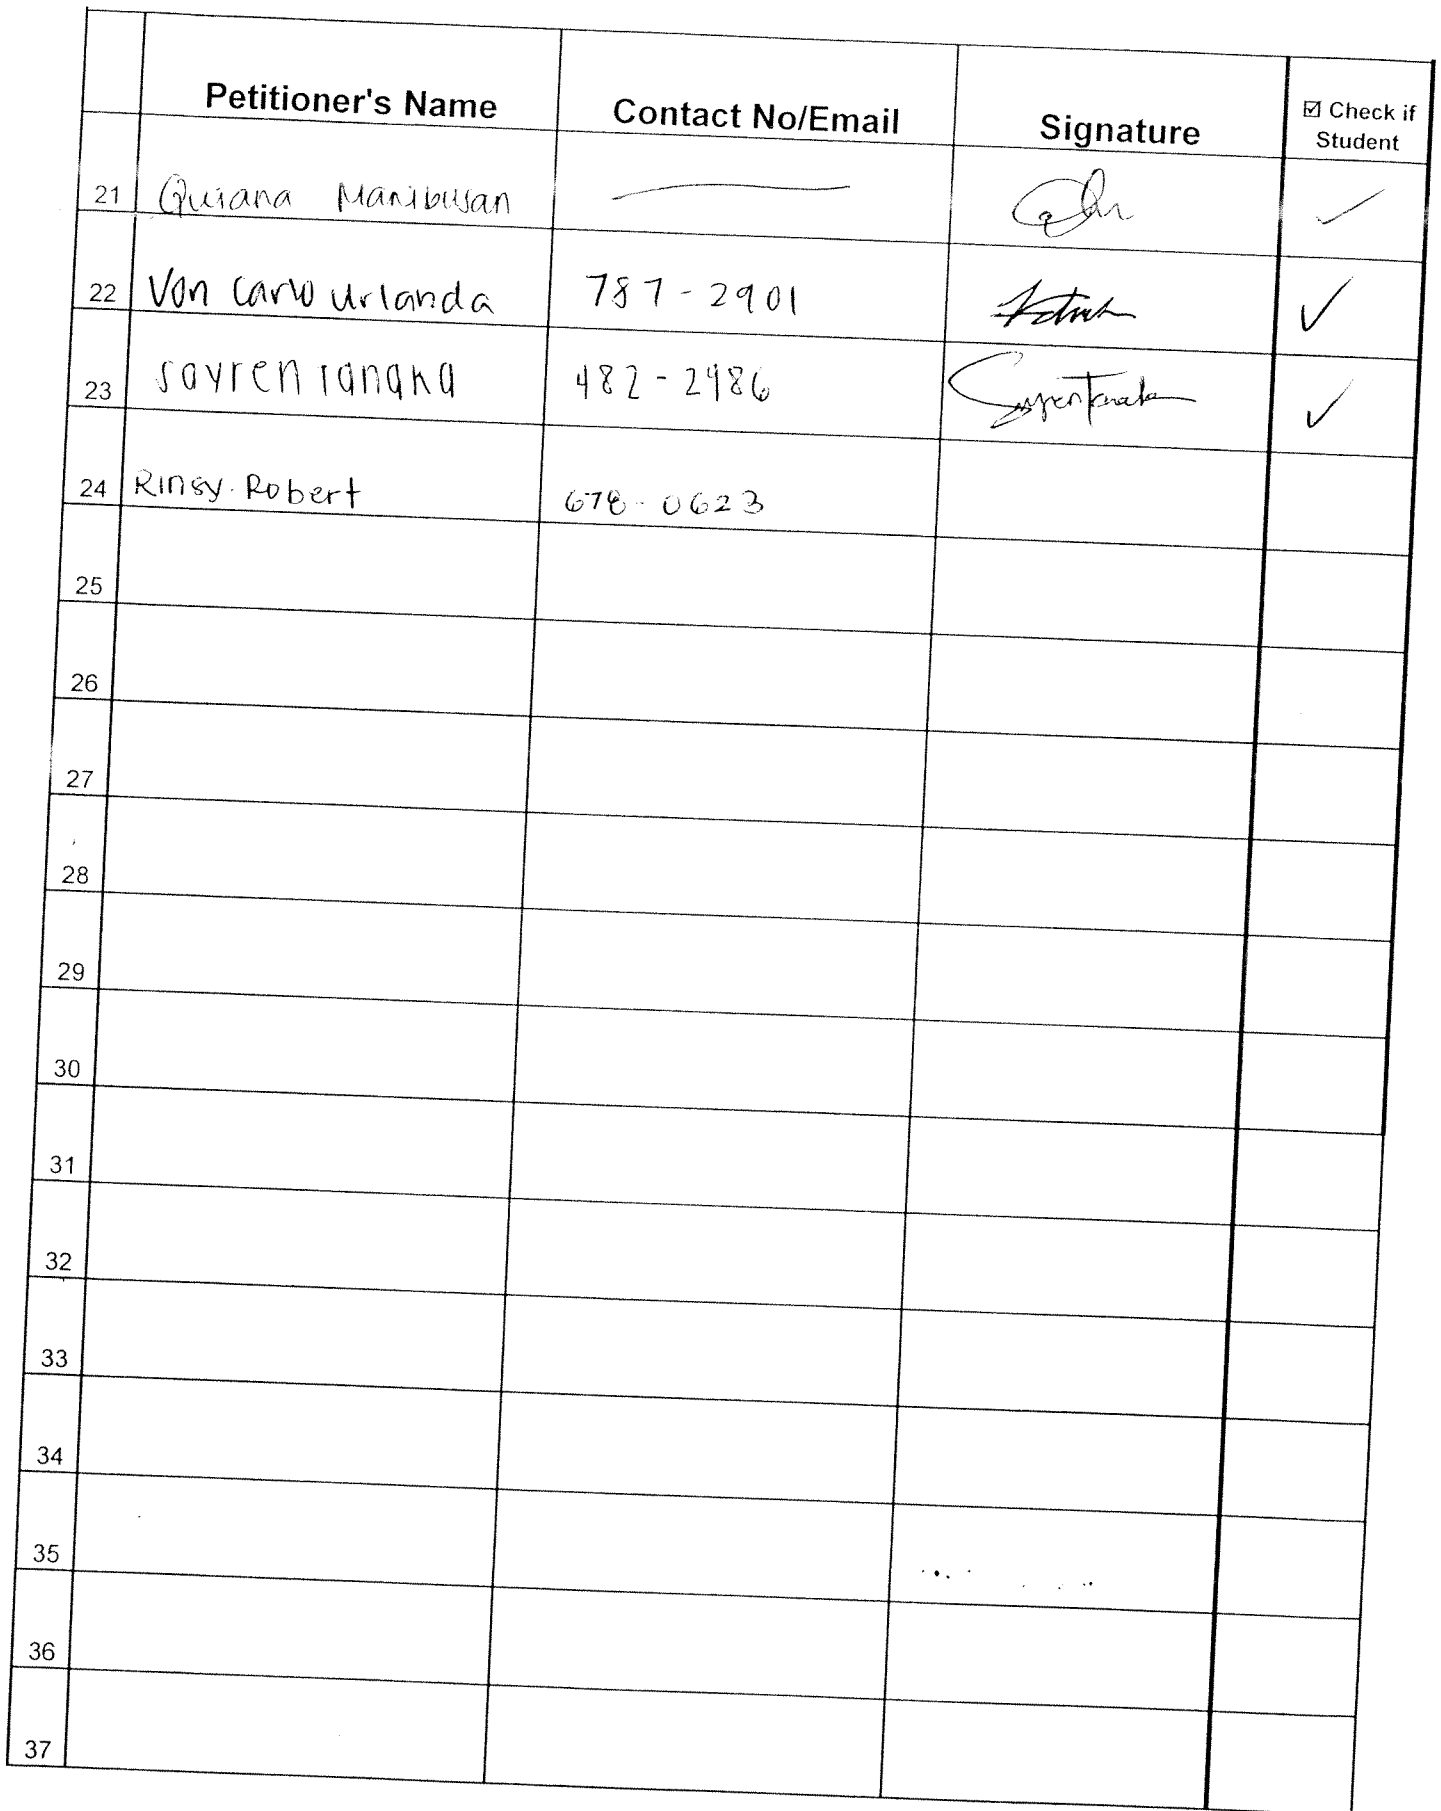 Petitioner's Name Contact No/Email Signature ☑ Check if Student
21 Quiana Manibusan ✓
22 Von Carlo Urlanda 787-2901 ✓
23 sayren Tanaka 482-2986 Sayren Tanaka ✓
24 Rinsy Robert 678-0623
25
26
27
28
29
30
31
32
33
34
35
36
37